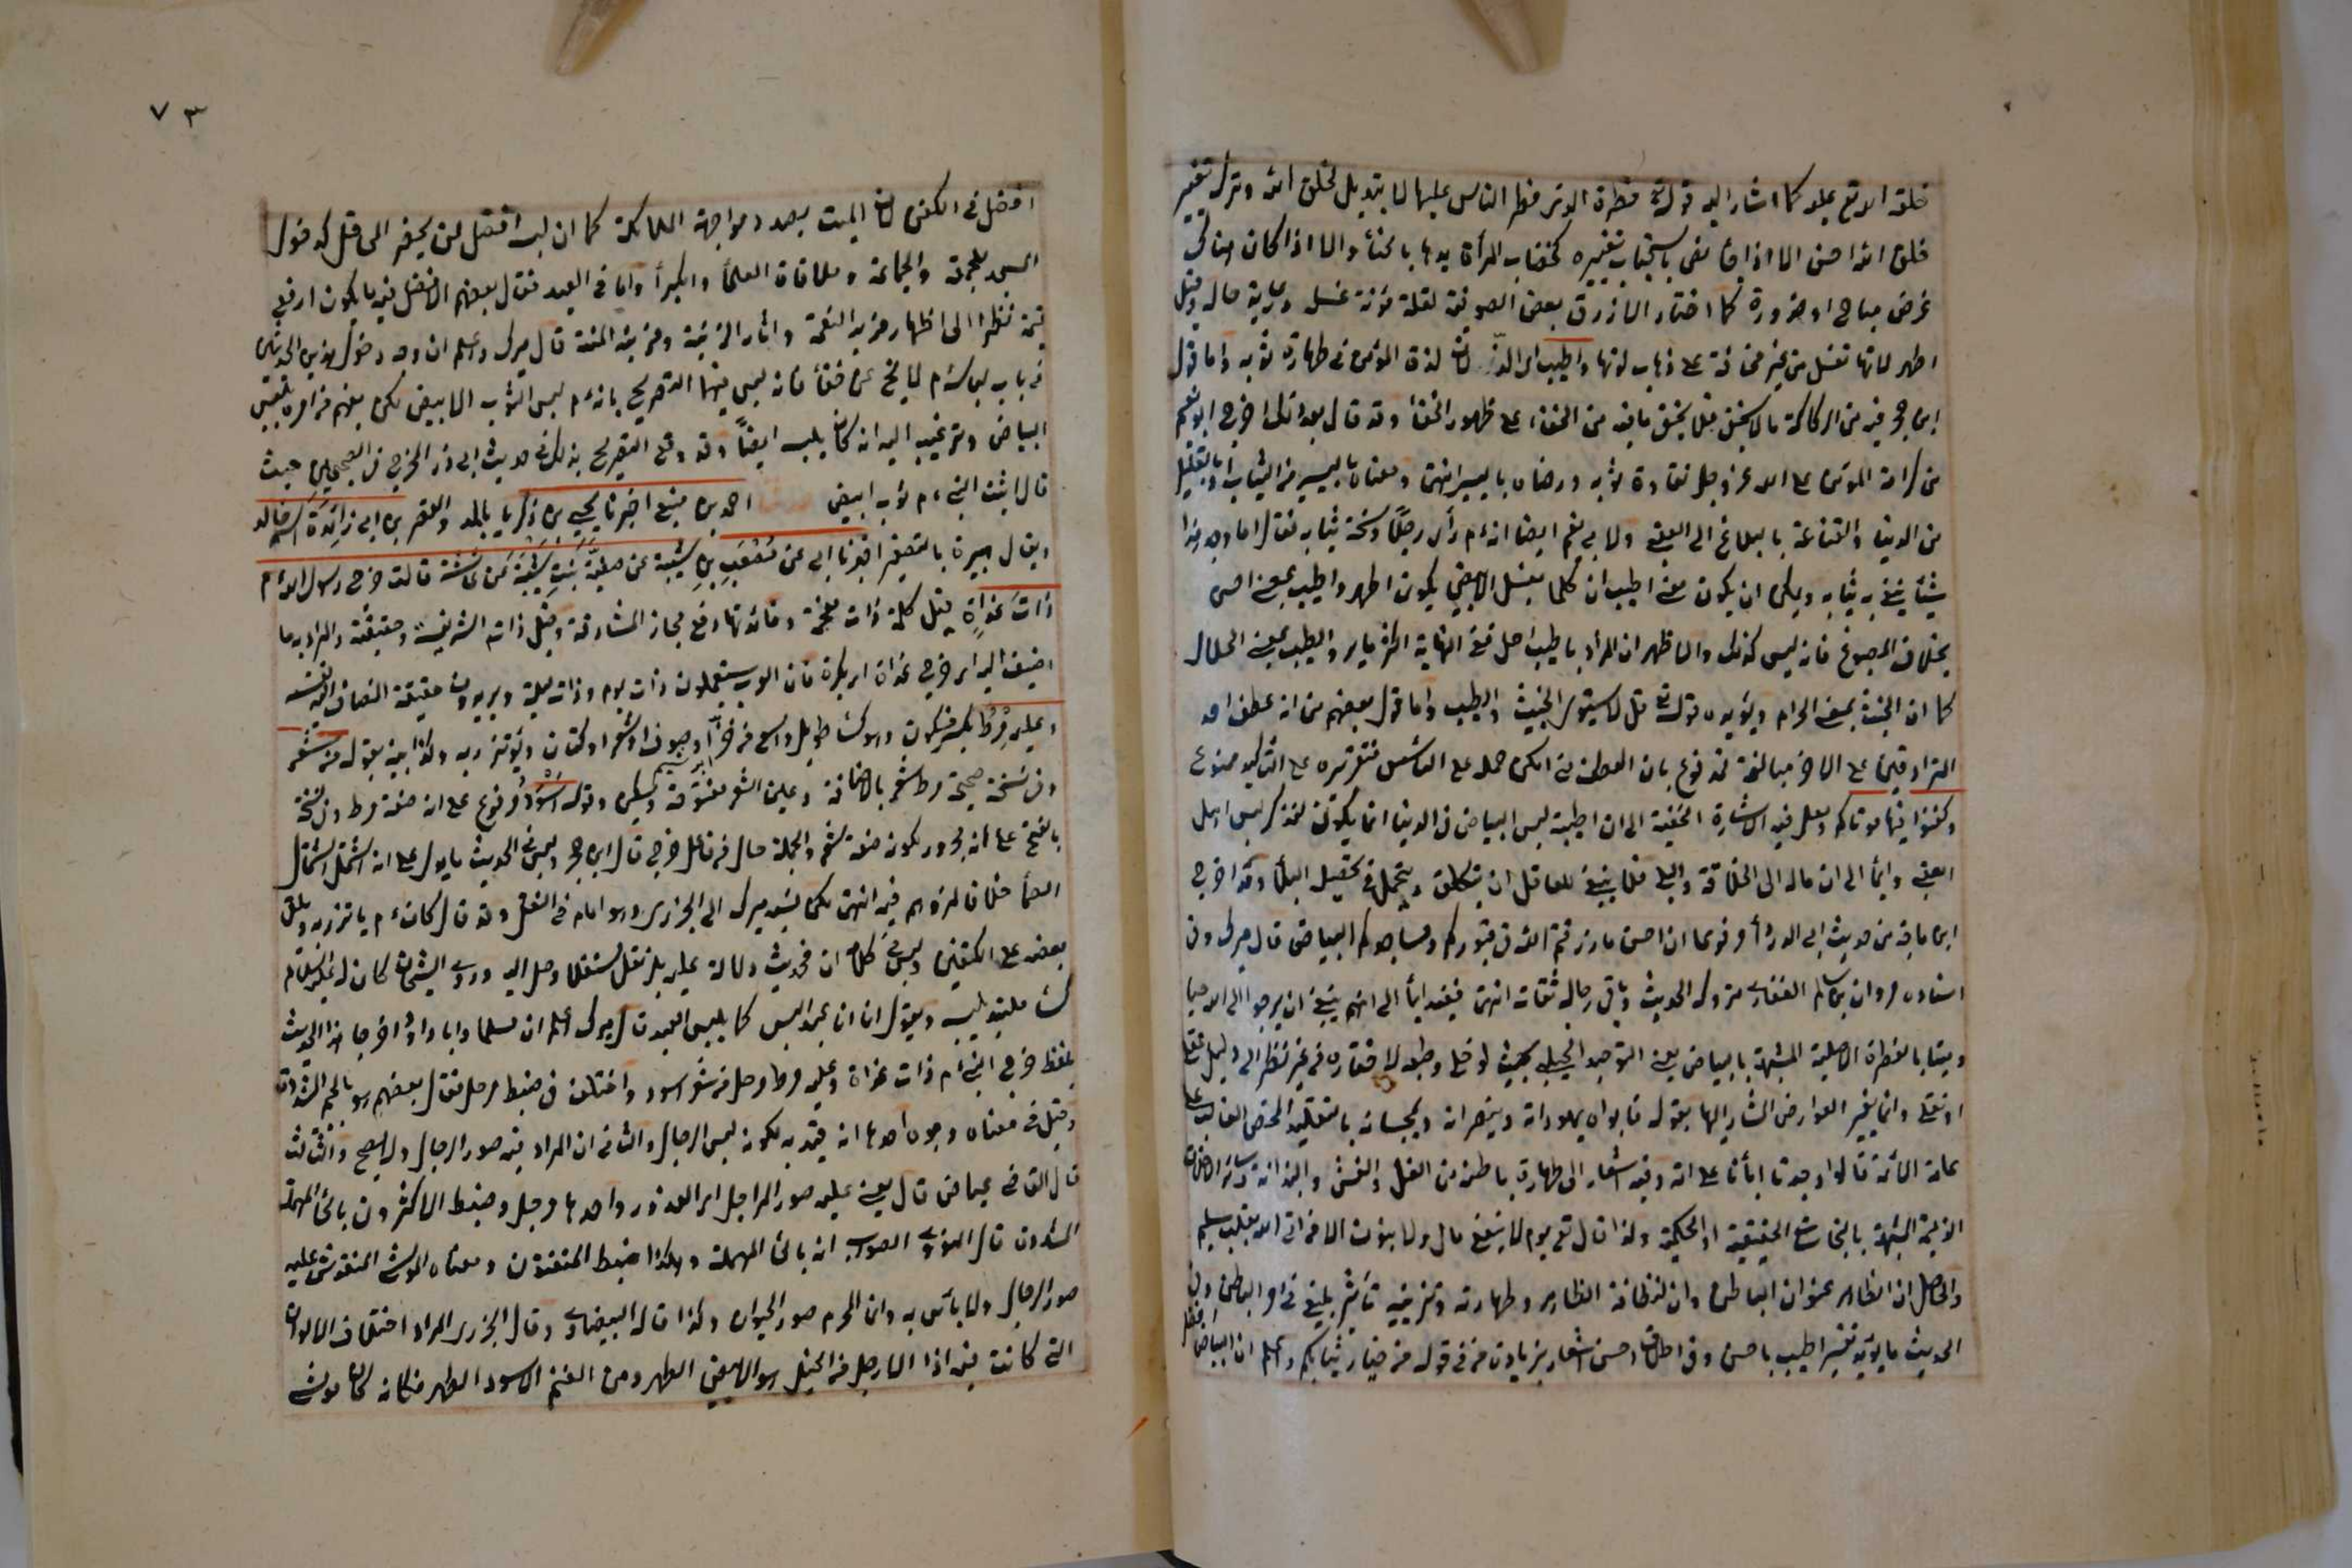 خلقه الله تع عليه كما اشار اليه قوله تع فطرة الله التى فطر الناس عليها لا تبديل لخلق الله وترك تغيير
خلق الله احسن الا اذا جا نص باستحباب تغييره كخضاب المرأة يدها بالحنأ والا اذا كان هناك
غرض مباح او ضرورة كما اختار الازرق بعض الصوفية لقلة مؤنة غسله ورعاية حاله وقيل
اطهر لانها تغسل من غير مخافة على ذهاب لونها واطيب اى الذّ لان لذة المؤمن فى طهارة ثوبه واما قول
ابن حجر فيه من الركاكة ما لا يخفى فلا يخفى ما فيه من الخفاء على ظهور الخفأ وقد قال بعد ذلك اخرج ابو نعيم
من كرامة المؤمن على الله عز وجل نقاوة ثوبه ورضاه باليسير انتهى ومعناه باليسير من الثياب او بالقليل
من الدنيا والقناعة بالبلاغ الى العقبى ولابى نعيم ايضا انه ءم رأى رجلًا وسخة ثيابه فقال اما وجد هذا
شيئًا ينقى به ثيابه ويمكن ان يكون معنى اطيب ان كلما يغسل الابيض يكون اطهر واطيب بمعنى احسن
بخلاف المصبوغ فانه ليس كذلك والاظهر ان المراد باطيب احل ففى النهاية اكثر ما يرد الطيب بمعنى الحلال
كما ان الخبيث بمعنى الحرام ويؤيده قوله تع قل لا يستوى الخبيث والطيب واما قول بعضهم من انه عطف احد
المترادفين على الاخر مبالغة فمدفوع بان العطف متى امكن حمله على التأسيس فتقريره على التأكيد ممنوع
وكفنوا فيها موتاكم ولعل فيه الاشارة الخفية الى ان اطيبية لبس البياض فى الدنيا انما يكون لتذكر لبس اهل
العقبى وايمأ الى ان ماله الى الخلاقة والبلى فلا ينبغى للعاقل ان يتكلف ويتحمل فى تحصيل البلأ وقد اخرج
ابن ماجه من حديث ابى الدردأ مرفوعا ان احسن ما زرتم الله فى قبوركم ومساجدكم البياض قال ميرك وفى
اسناده مروان بن سالم الغفارى متروك الحديث وباقى رجاله ثقات انتهى ففيه ايمأ الى انهم ينبغى ان يرجوا الى الله حيا
وميتا بالفطرة الاصلية المشبهة بالبياض يعنى التوحيد الجبلى بحيث لو خلى وطبعه لاختاره من غير نظر الى دليل عقلى
او نقلى وانما يغير العوارض المشار اليها بقوله فابواه يهودانه وينصرانه ويمجسانه بالتقليد المحض الغالب على
عامة الائمة قالوا وجدنا ابأنا على امة وفيه اشعار الى طهارة باطنه من الغل والغش والعداوة وسائر الاخلاق
الذميمة المشبهة بالنجاسة الحقيقية او الحكمية ولذا قال تع يوم لا ينفع مال ولا بنون الا من اتى الله بقلب سليم
والحاصل ان الظاهر عنوان الباطن وان لنظافة الظاهر وطهارته وتزيينه تأثير بليغ فى امر الباطن وفى
الحديث ما يؤيد تفسير اطيب باحسن وفى اطلاق احسن اشعار بزيادة من فى قوله من خيار ثيابكم واعلم ان البياض افضل
٧٣
افضل فى الكفن لان الميت بصدد مواجهة الملائكة كما ان لبسه افضل لمن يحضر المحافل كدخول
المسجد للجمعة والجماعة وملاقاة العلمأ والكبرأ واما فى العيد فقال بعضهم الافضل فيه ما يكون ارفع
قيمة نظرا الى اظهار مزيد النعمة واثار الزينة ومزية المنة قال ميرك واعلم ان وجه دخول هذين الحديثين
فى باب لباسه ءم لا يخ عن خفأ فانه ليس فيهما التصريح بانه ءم لبس الثوب الابيض لكن يفهم من امره بلبس
البياض وترغيبه اليه انه كان يلبسه ايضاً وقد وقع التصريح بذلك فى حديث ابى ذر المخرج فى الصحيحين حيث
قال اتيت النبى ءم وعليه ثوب ابيض حدثنا احمد بن منيع اخبرنا يحيى بن زكريا بالمد والقصر بن ابى زائدة اسمه خالد
ويقال هبيرة بالتصغير اخبرنا ابى عن مصعب بن شيبة عن صفيّة بنت شيبة عن عائشة قالت خرج رسول الله ءم
ذات غداةٍ قيل كلمة ذات مقحمة وفائدتها دفع مجاز المشارفة وقيل ذاته الشريفة وحقيقته والمراد به ما
اضيف اليه اى خرج غداة اى بكرة فان العرب يستعملون ذات يوم وذات ليلة ويريدون حقيقة المضاف اليه نفسه
وعليه مِرْطٌ بكسر فسكون وهو كسأ طويل واسع من خز أو صوف او شعر او كتان يؤتزر به ولذا بينه بقوله من شعر
وفى نسخة صحيحة مرط شعر بالاضافة وعين الشعر مفتوحة ويسكن وقوله اسود مرفوع على انه صفة مرط وفى نسخة
بالفتح على انه مجرور لكونه صفة شعر والجملة حال من فاعل خرج قال ابن حجر وليس فى الحديث ما يدل على انه اشتمل اشتمال
الصمأ خلافا لزعمهم فيه انتهى لكن نسبه ميرك الى الجزرى وهو امام فى النقل وقد قال كان ءم يأتزر به ويلقى
بعضه على الكتفين وليس فى كلامه ان فى حديث دلالة عليه بل نقل مستقلا وصل اليه وروى الشيخان كان له عليه السلام
كسأ ملبد يلبسه ويقول انما انا عبد البس كما يلبس العبد قال ميرك اعلم ان مسلما وابا داود اخرجا هذا الحديث
بلفظ خرج النبى ءم ذات غداة وعليه مرط مرحل من شعر اسود واختلف فى ضبط مرحل فقال بعضهم هو بالجيم المشددة
وقيل فى معناه وجوه احدها انه قيد به لكونه لبس الرجال والثانى ان المراد فيه صور الرجال ولا يصح والثالث
قال القاضى عياض قال يعنى عليه صور المراجل اى القدور واحدها مرجل وضبط الاكثرون بالحأ المهملة
المشددة قال النووى الصواب انه بالحأ المهملة وهكذا ضبط المتقنون ومعناه الموشى المنقوش عليه
صور الرحال ولا بأس به وانما المحرم صور الحيوان وكذا قال البيضاوى وقال الجزرى المراد اختلاف الالوان
التى كانت فيه اذا الارحل من الخيل هو الابيض الظهر ومن الغنم الاسود الظهر فكانه كان موشى